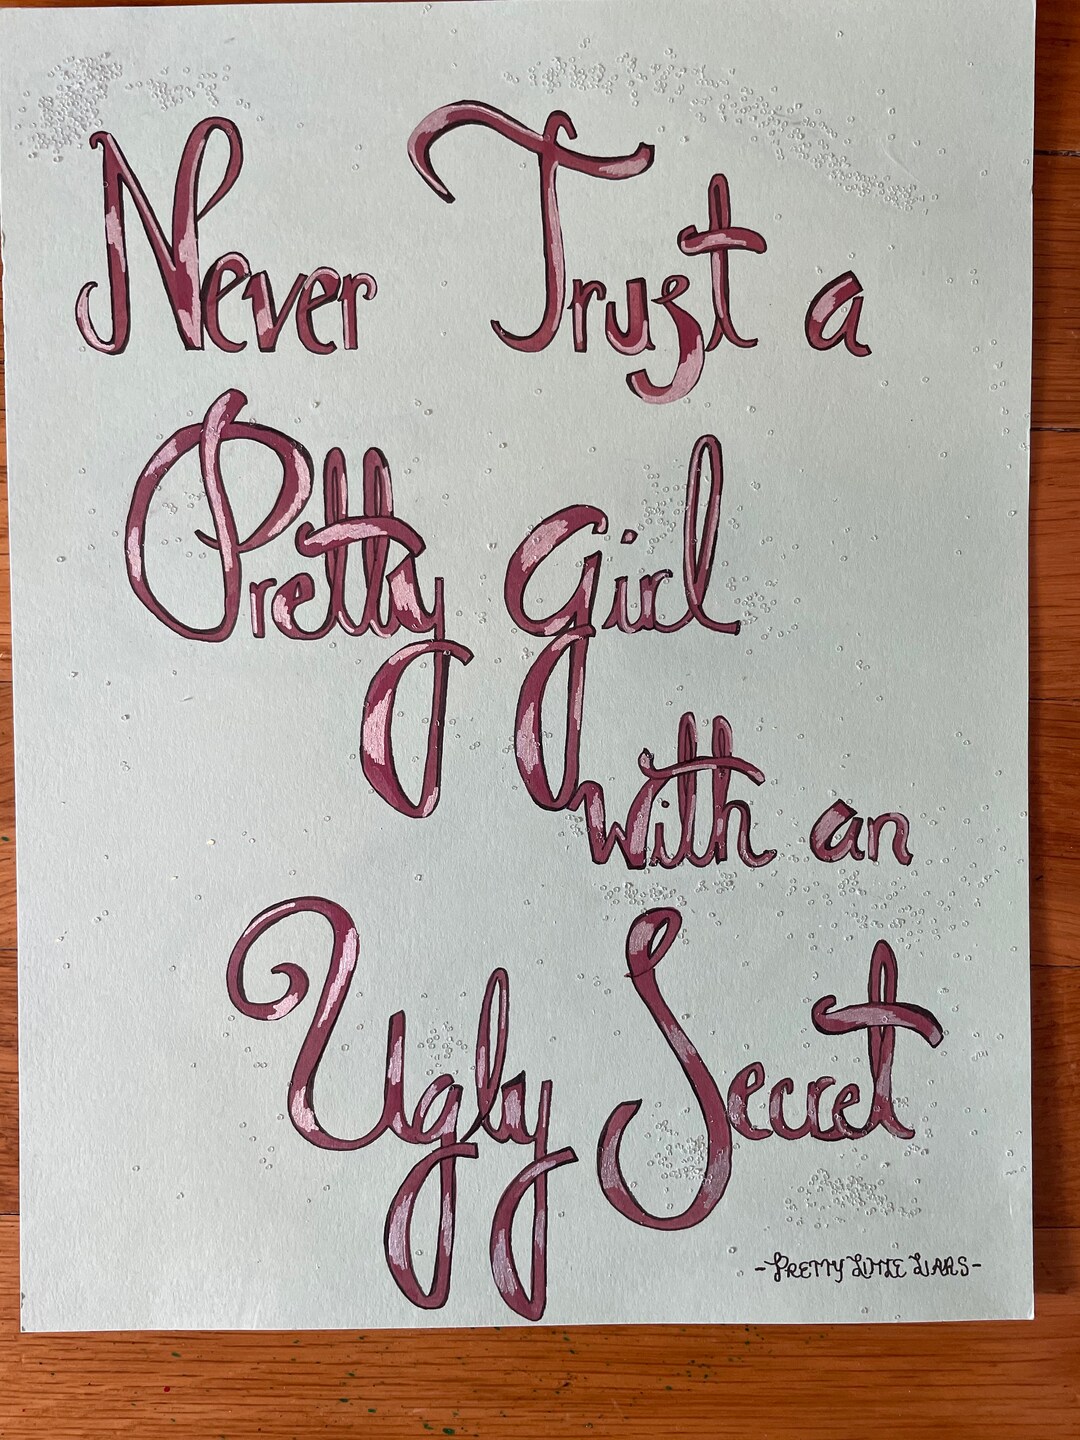 Never Trust a
Pretty Girl
with an
Ugly Secret
-PRETTY LITTLE LIARS-